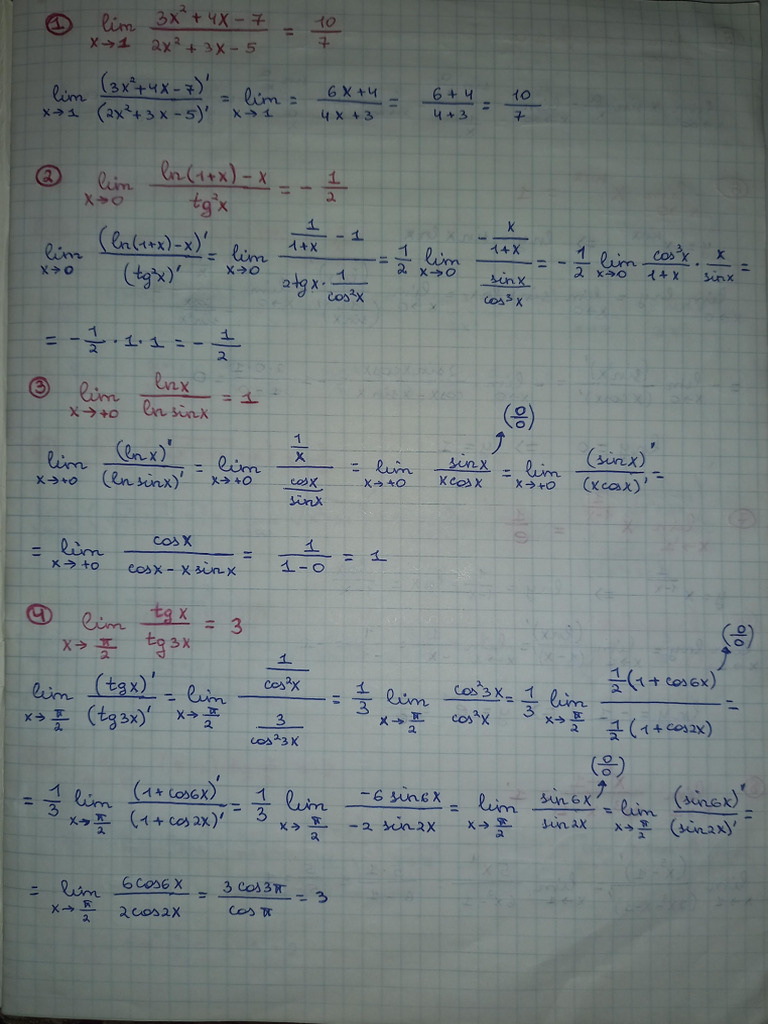 ① lim x→1 (3x² + 4x − 7)/(2x² + 3x − 5) = 10/7
lim x→1 (3x²+4x−7)'/(2x²+3x−5)' = lim x→1 = (6x+4)/(4x+3) = (6+4)/(4+3) = 10/7
② lim x→0 (ln(1+x) − x)/(tg²x) = − 1/2
lim x→0 (ln(1+x)−x)'/(tg²x)' = lim x→0 (1/(1+x) − 1)/(2tgx · 1/cos²x) = 1/2 lim x→0 (−x/(1+x))/(sinx/cos³x) = − 1/2 lim x→0 cos³x/(1+x) · x/sinx =
= − 1/2 · 1 · 1 = − 1/2
③ lim x→+0 lnx/(ln sinx) = 1
(0/0)
lim x→+0 (lnx)'/(ln sinx)' = lim x→+0 (1/x)/(cosx/sinx) = lim x→+0 sinx/(xcosx) = lim x→+0 (sinx)'/(xcosx)' =
= lim x→+0 cosx/(cosx − x sinx) = 1/(1−0) = 1
④ lim x→π/2 tgx/tg3x = 3
(0/0)
lim x→π/2 (tgx)'/(tg3x)' = lim x→π/2 (1/cos²x)/(3/cos²3x) = 1/3 lim x→π/2 cos²3x/cos²x = 1/3 lim x→π/2 (1/2(1+cos6x))/(1/2(1+cos2x)) =
(0/0)
= 1/3 lim x→π/2 (1+cos6x)'/(1+cos2x)' = 1/3 lim x→π/2 (−6 sin6x)/(−2 sin2x) = lim x→π/2 sin6x/sin2x = lim x→π/2 (sin6x)'/(sin2x)' =
= lim x→π/2 6cos6x/2cos2x = 3cos3π/cosπ = 3